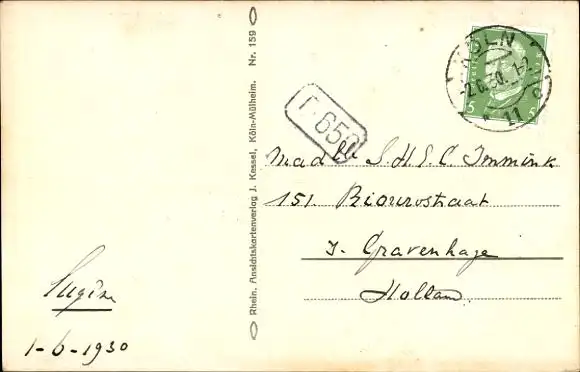 Rhein. Ansichtskartenverlag J. Kessel, Köln-Mülheim. Nr. 159
KÖLN
-2.6.30. 1-2
11
5 5
r. 650
Mad lle S.H.E.C. Immink
151. Riouwstraat
's. Gravenhage
Holland
1-6-1930